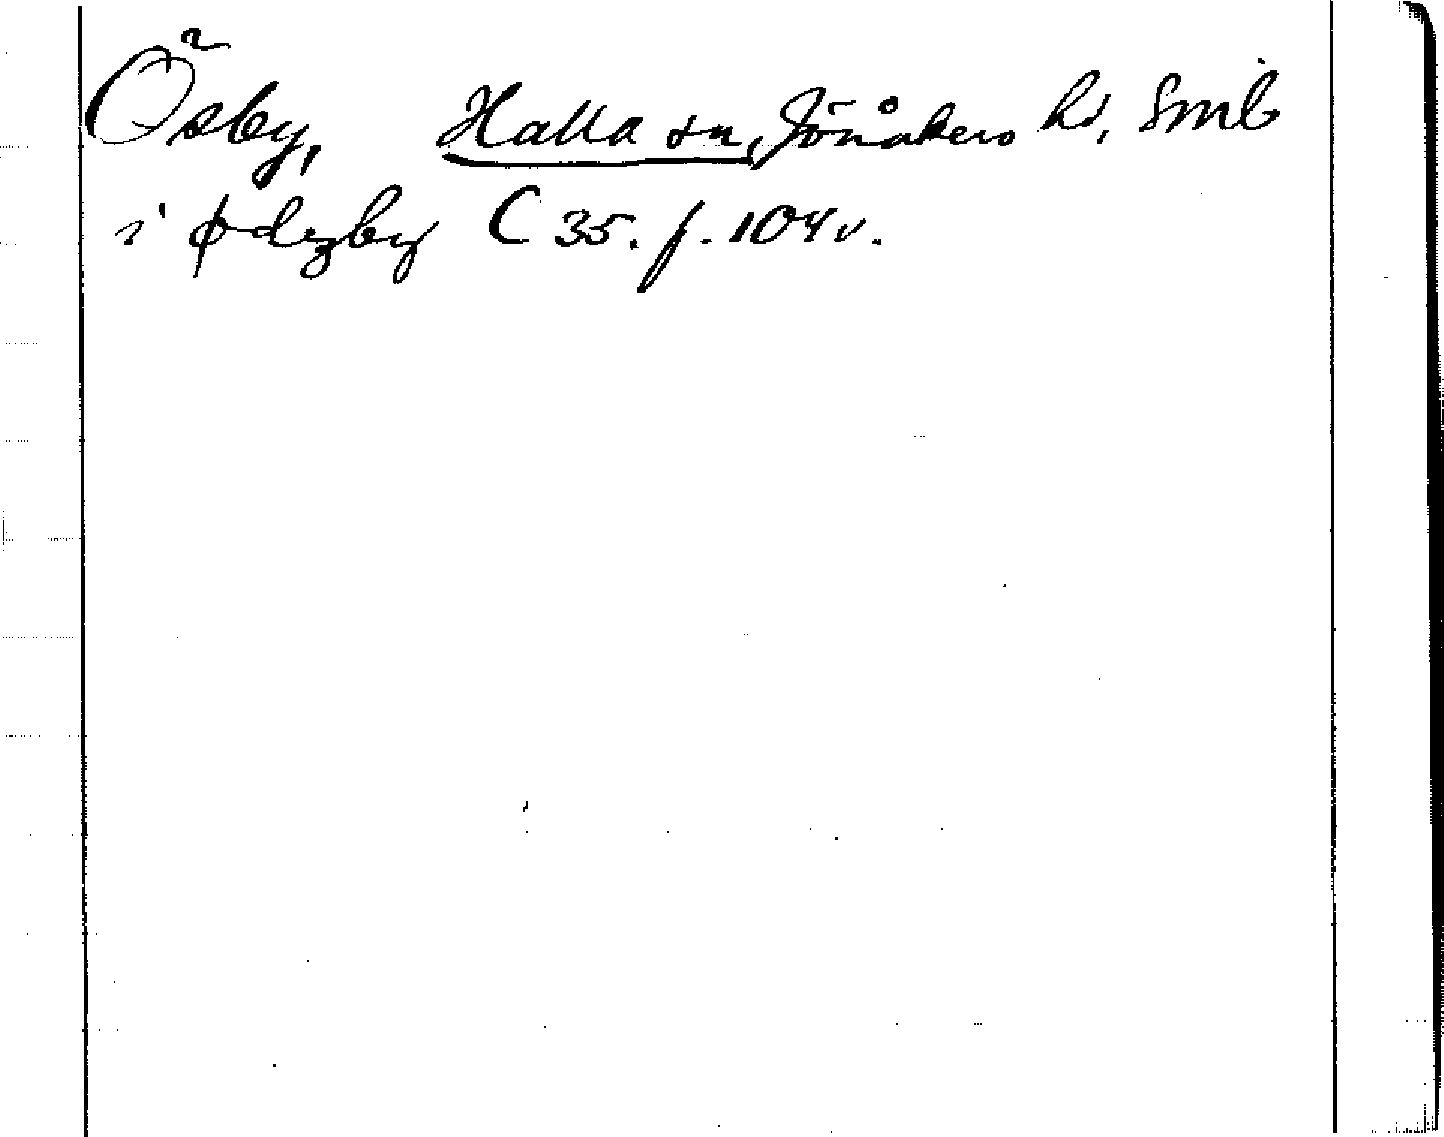 Ösby, Halla sn, Jönåkers hd, Sml
i ødzby C 35. f. 104v.